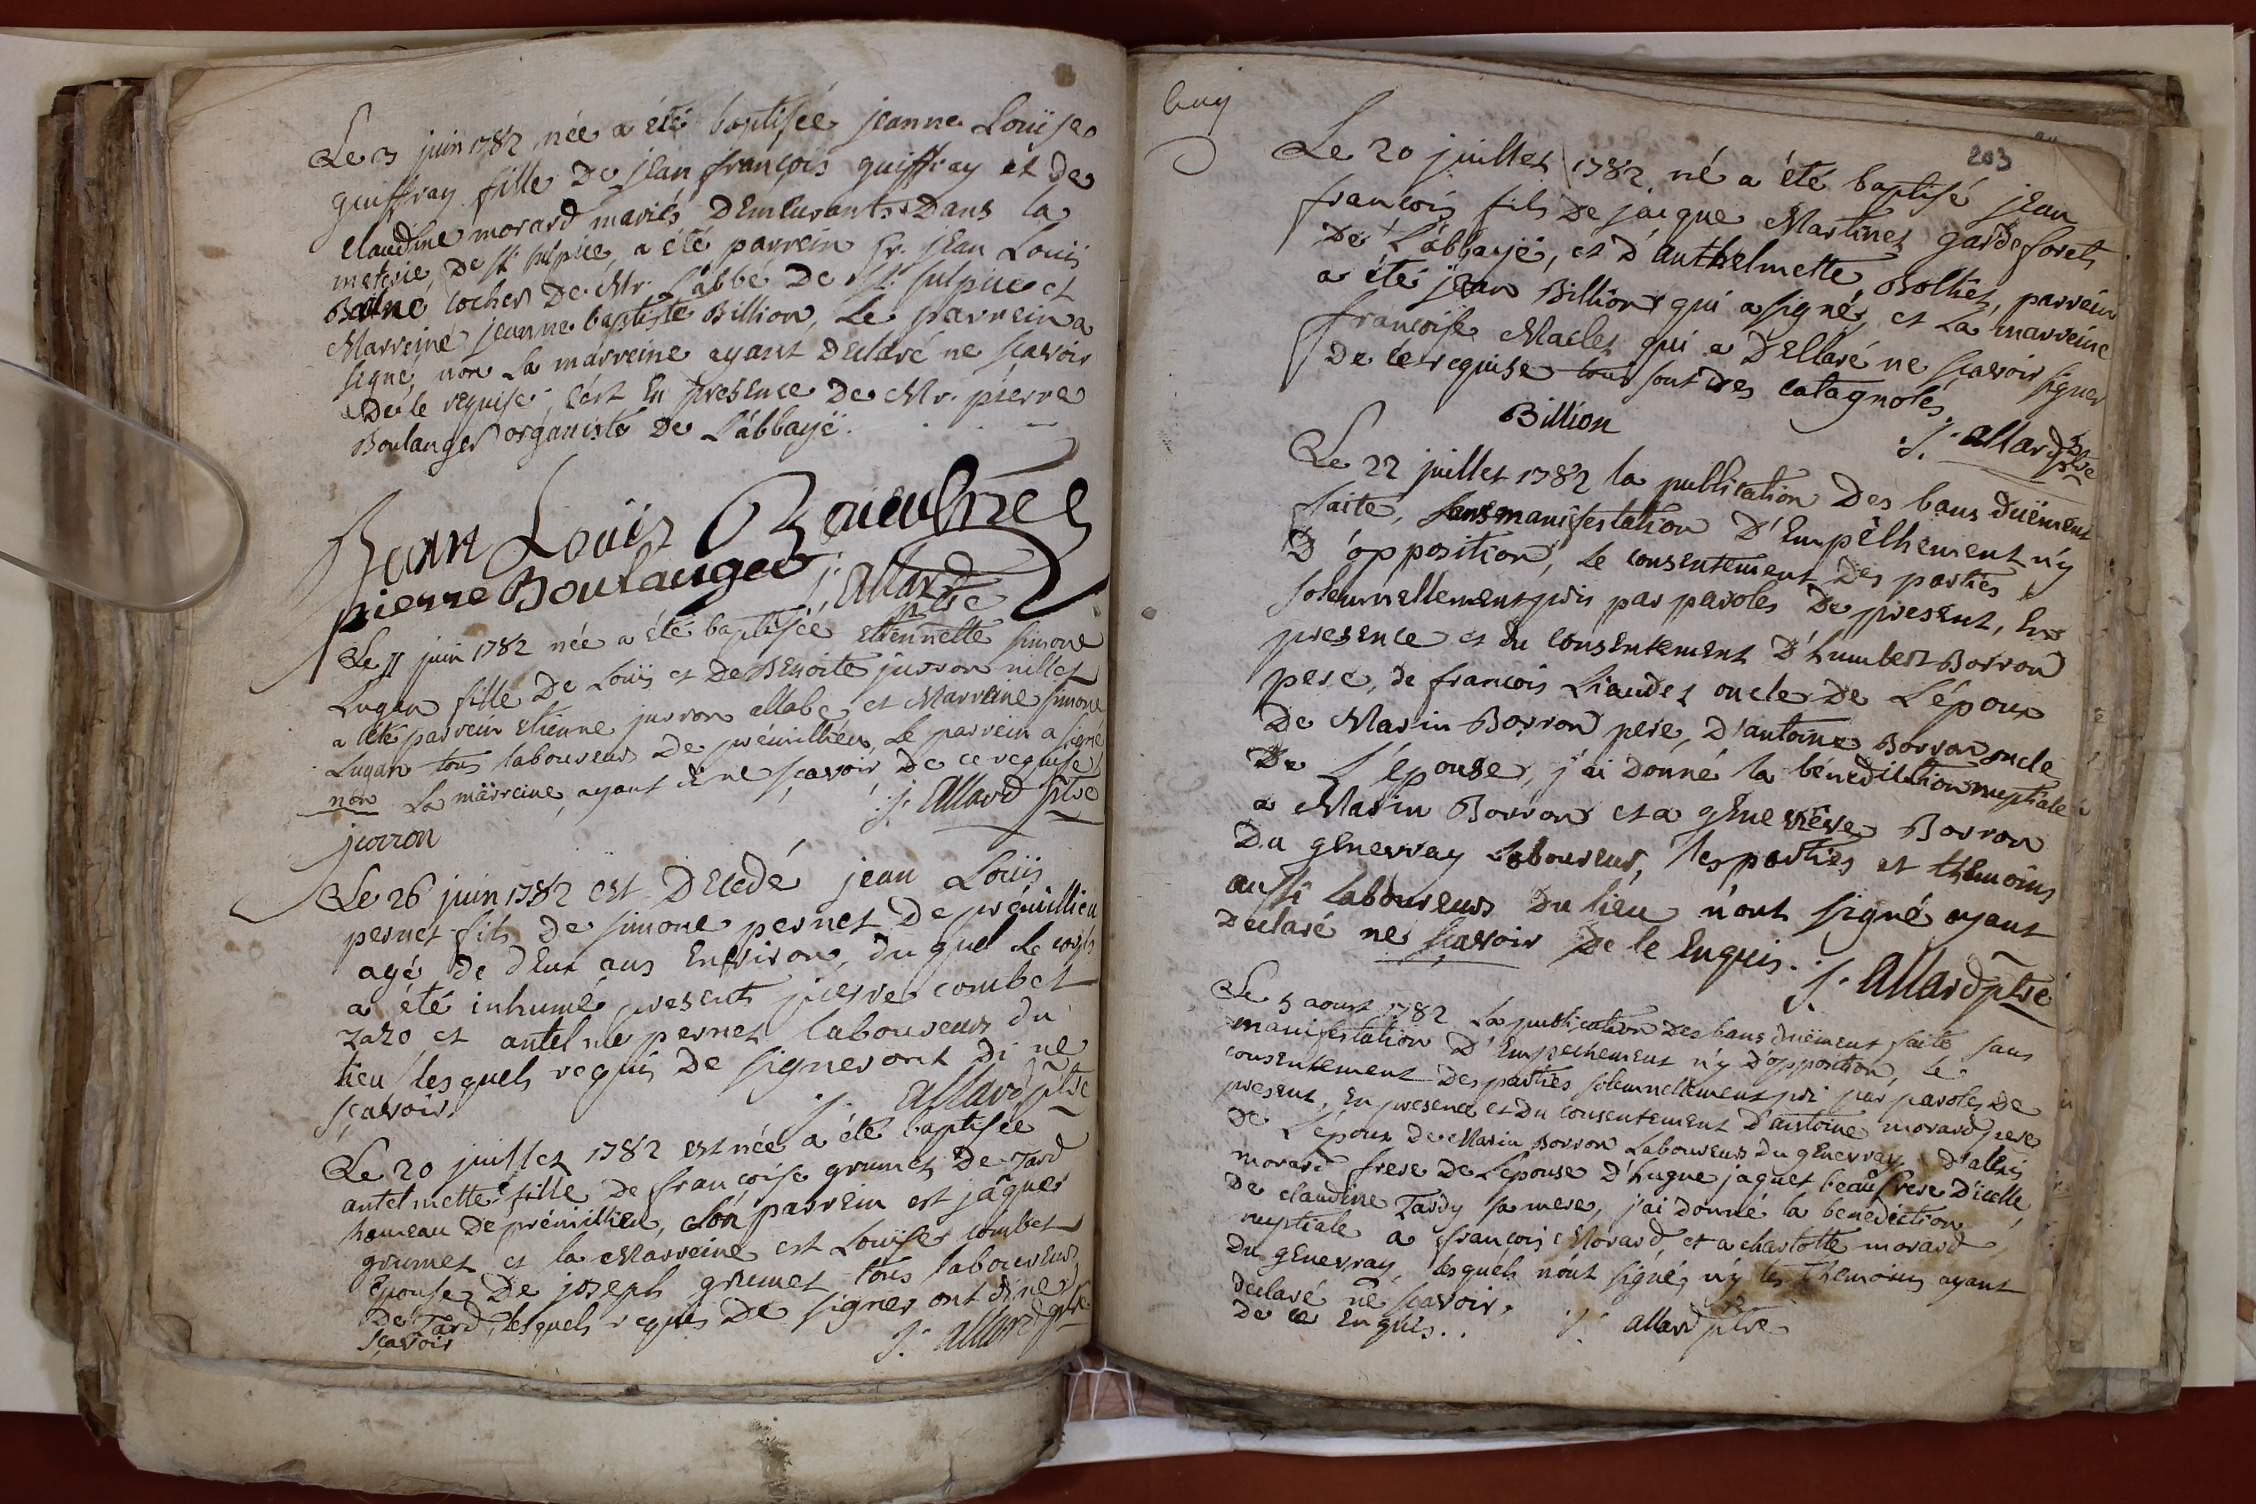 Le 3 juin 1782 née a été baptisée jeanne Louïse
guiffray fille De jean françois guiffray et de
claudine morard mariés Demeurants Dans la
meterie De st. sulpice, a été parrein sr. jean Louis
cocher De Mr. L'abbé De st. sulpice et
Marreine jeanne baptiste Billion, Le parrein a
signé, non La marreine ayant Declaré ne sçavoir
De le requise, c'est En presence De Mr. pierre
Boulanger organiste De L'abbayë.
Jean Louis
pierre Boulanger j: allard ptre
Le 11 juin 1782 née a été baptisée etiennette simone
Lugan fille De Louis et De Benoite juron nillet
a été parrein etienne juron allabe, et Marreine simone
Lugan tous laboureurs De premillieu, Le parrein a signé
non La marreine, ayant dit ne sçavoir De ce requise
j: allard ptre
juron
Le 26 juin 1782 est Decedé jean Louis
pernet fils de simone pernet De premillieu
agé de deux ans Environ, du quel le corps
a été inhumé presents pierre combet
zazo et antelme pernet laboureurs du
lieu lesquels requis De signer ont di ne
sçavoir. j: allard ptre
Le 20 juillet 1782 est née a été baptisée
antelmette fille De françoise grumet De Tard
hameau De prémillieu, son parrein est jâques
grumet et la Marreine est Louise combet
epouse De joseph grumet tous laboureurs
De Tard, lesquels requis De signer ont di ne
sçavoir j: allard ptre
203
Le 20 juillet 1782, né a été baptisé jean
françois fils De jacque Martinet garde forets
De L'abbayë, et D'anthelmette Bolliet, parrein
a été jean Billion qui a signé, et La marreine
françoise Maclet qui a Dellaré ne sçavoir signer
De ce requise tous sont des catagnolés.
Billion j: allard ptre
Le 22 juillet 1782 la publication Des bans duëment
faite, sans manifestation D'Empêchement n'y
D'opposition, Le consentement Des parties
solemnellement pris par paroles De present, En
presence et du consentement D'humbert Borron
pere, de françois Liaudet oncle De L'époux
De Marin Borron pere, D'antoine Borron oncle
De L'épouse, j'ai donné la bénédiction nuptiale
a Marin Borron et a genevieve Borron
Du genevray Laboureurs, les parties et themoins
aussi laboureurs Du lieu n'ont signé ayant
Declaré ne sçavoir De le Enquis.
j: allard ptre
Le 5 aoust 1782 La publication Des bans duëment faite, sans
manifestation D'Empechement n'y D'opposition, Le
consentement Des parties solemnellement pri par paroles De
present, En presence et Du consentement D'antoine morard pere
De L'époux De Marin Borron Laboureurs Du genevray, D'allexis
morard frere De L'epouse D'hugue jaquet beaufrere D'icelle,
De claudine Tardy sa mere, j'ai donné la benediction
nuptiale a françois Morard et a charlotte morard
Du genevray, lesquels n'ont signé, n'y les Themoins ayant
declaré ne sçavoir,
De ce Enquis. . j: allard ptre